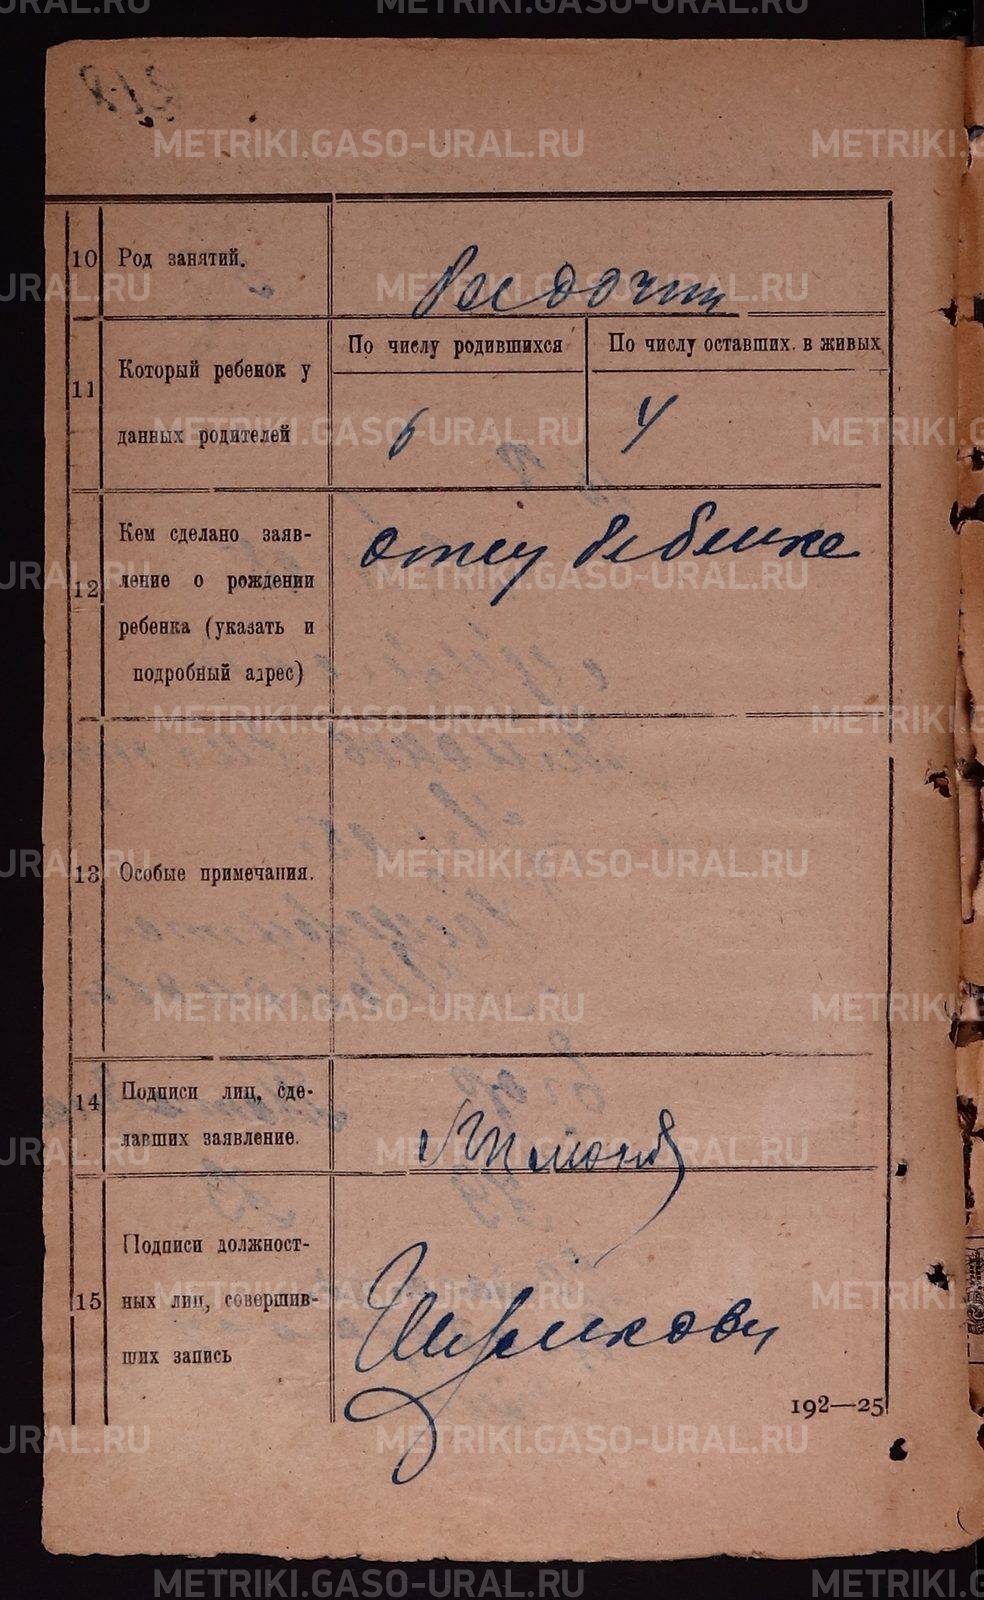 10 Род занятий.
11 Который ребенок у
данных родителей
По числу родившихся
По числу оставших. в живых
6
4
12 Кем сделано заяв-
ление о рождении
ребенка (указать и
подробный адрес)
отец ребенка
13 Особые примечания.
14 Подписи лиц, сде-
лавших заявление.
15 Подписи должност-
ных лиц, совершив-
ших запись
192—25
METRIKI.GASO-URAL.RU